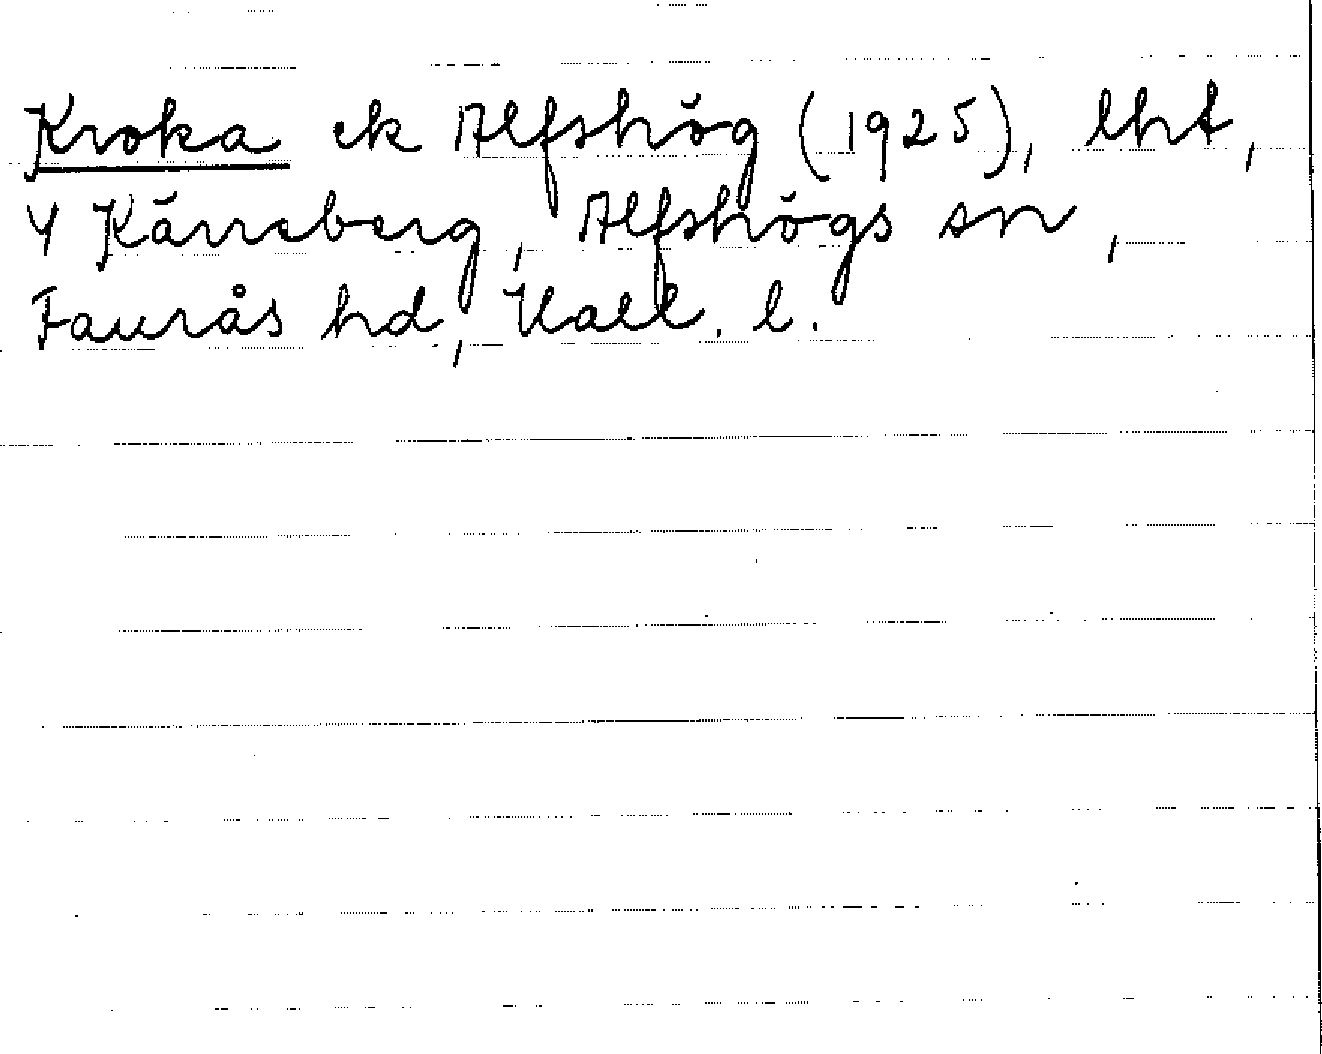 Kroka ek Alfshög (1925), lht,
4 Kärreberg, Alfshögs sn,
Faurås hd, Hall. l.